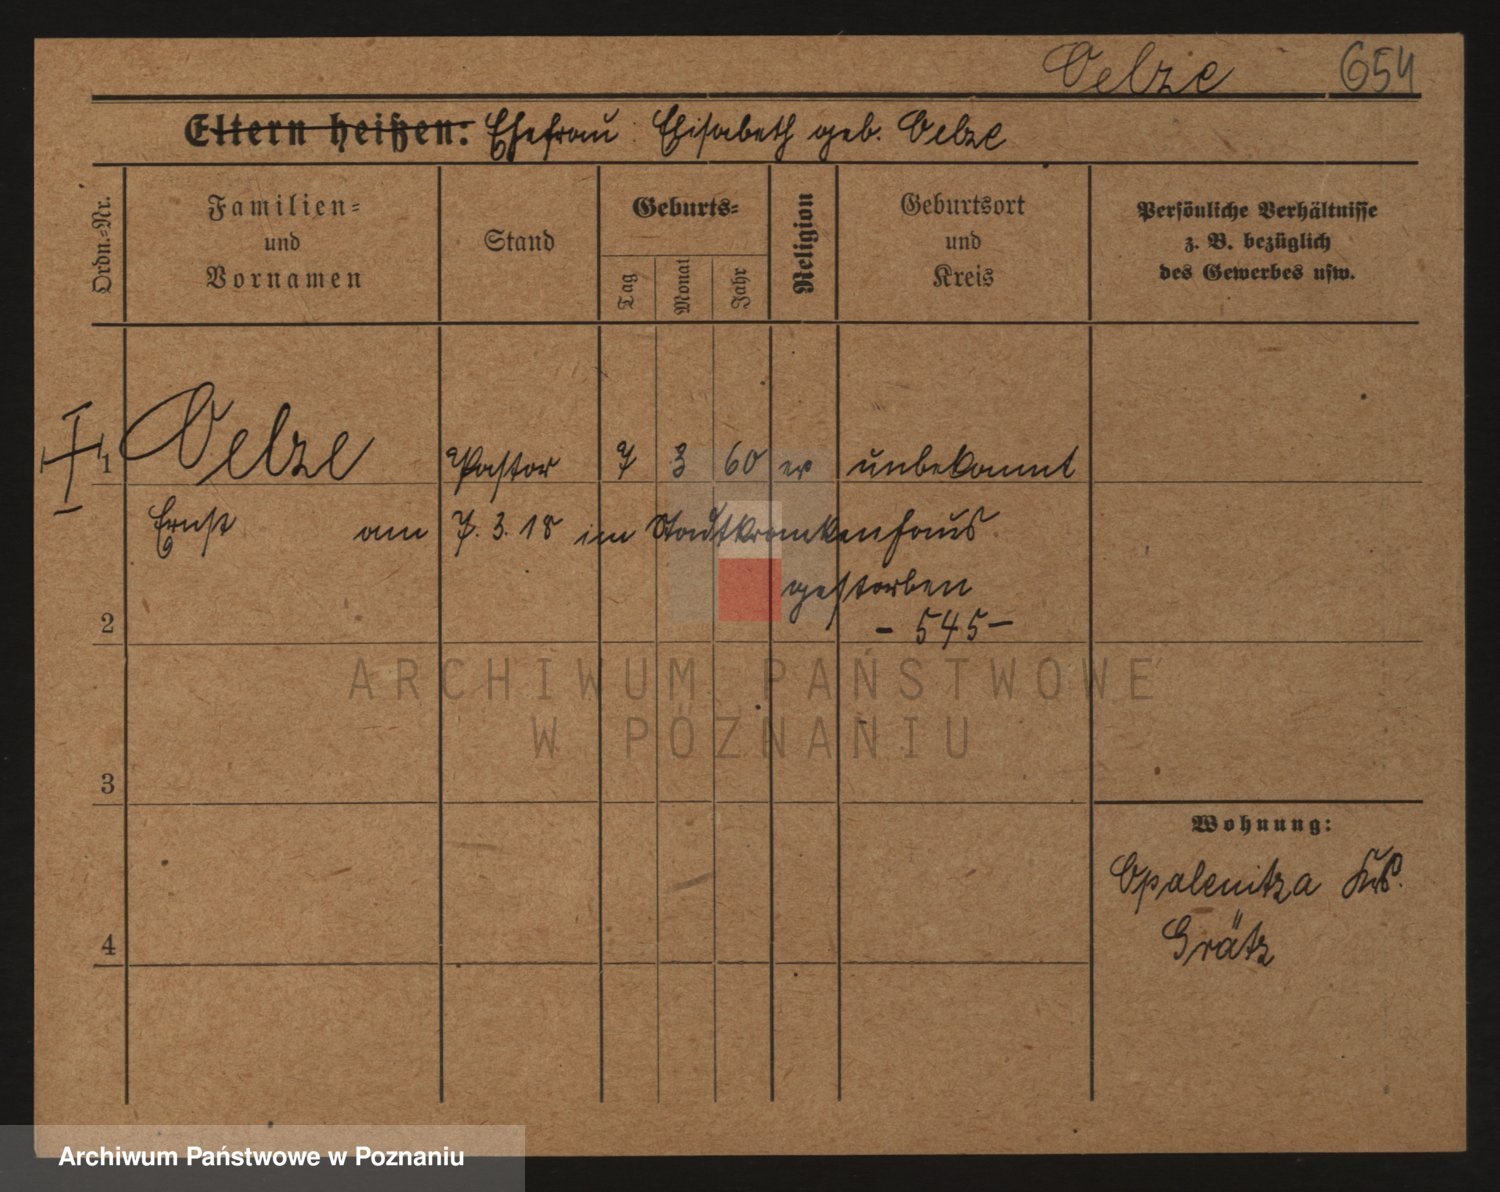 Oelze 654
Eltern heißen: Ehefrau Elisabeth geb. Oelze
Ordn.-Nr.
Familien-
und
Vornamen
Stand
Geburts-
Tag
Monat
Jahr
Religion
Geburtsort
und
Kreis
Persönliche Verhältnisse
z. B. bezüglich
des Gewerbes usw.
1 Oelze Pastor 7 3 60 ev unbekannt
Ernst am 7. 3. 18 im Stadtkrankenhaus
gestorben
2 - 545 -
ARCHIWUM PAŃSTWOWE
W POZNANIU
3
Wohnung:
Opalenitza Krs.
Grätz
4
Archiwum Państwowe w Poznaniu